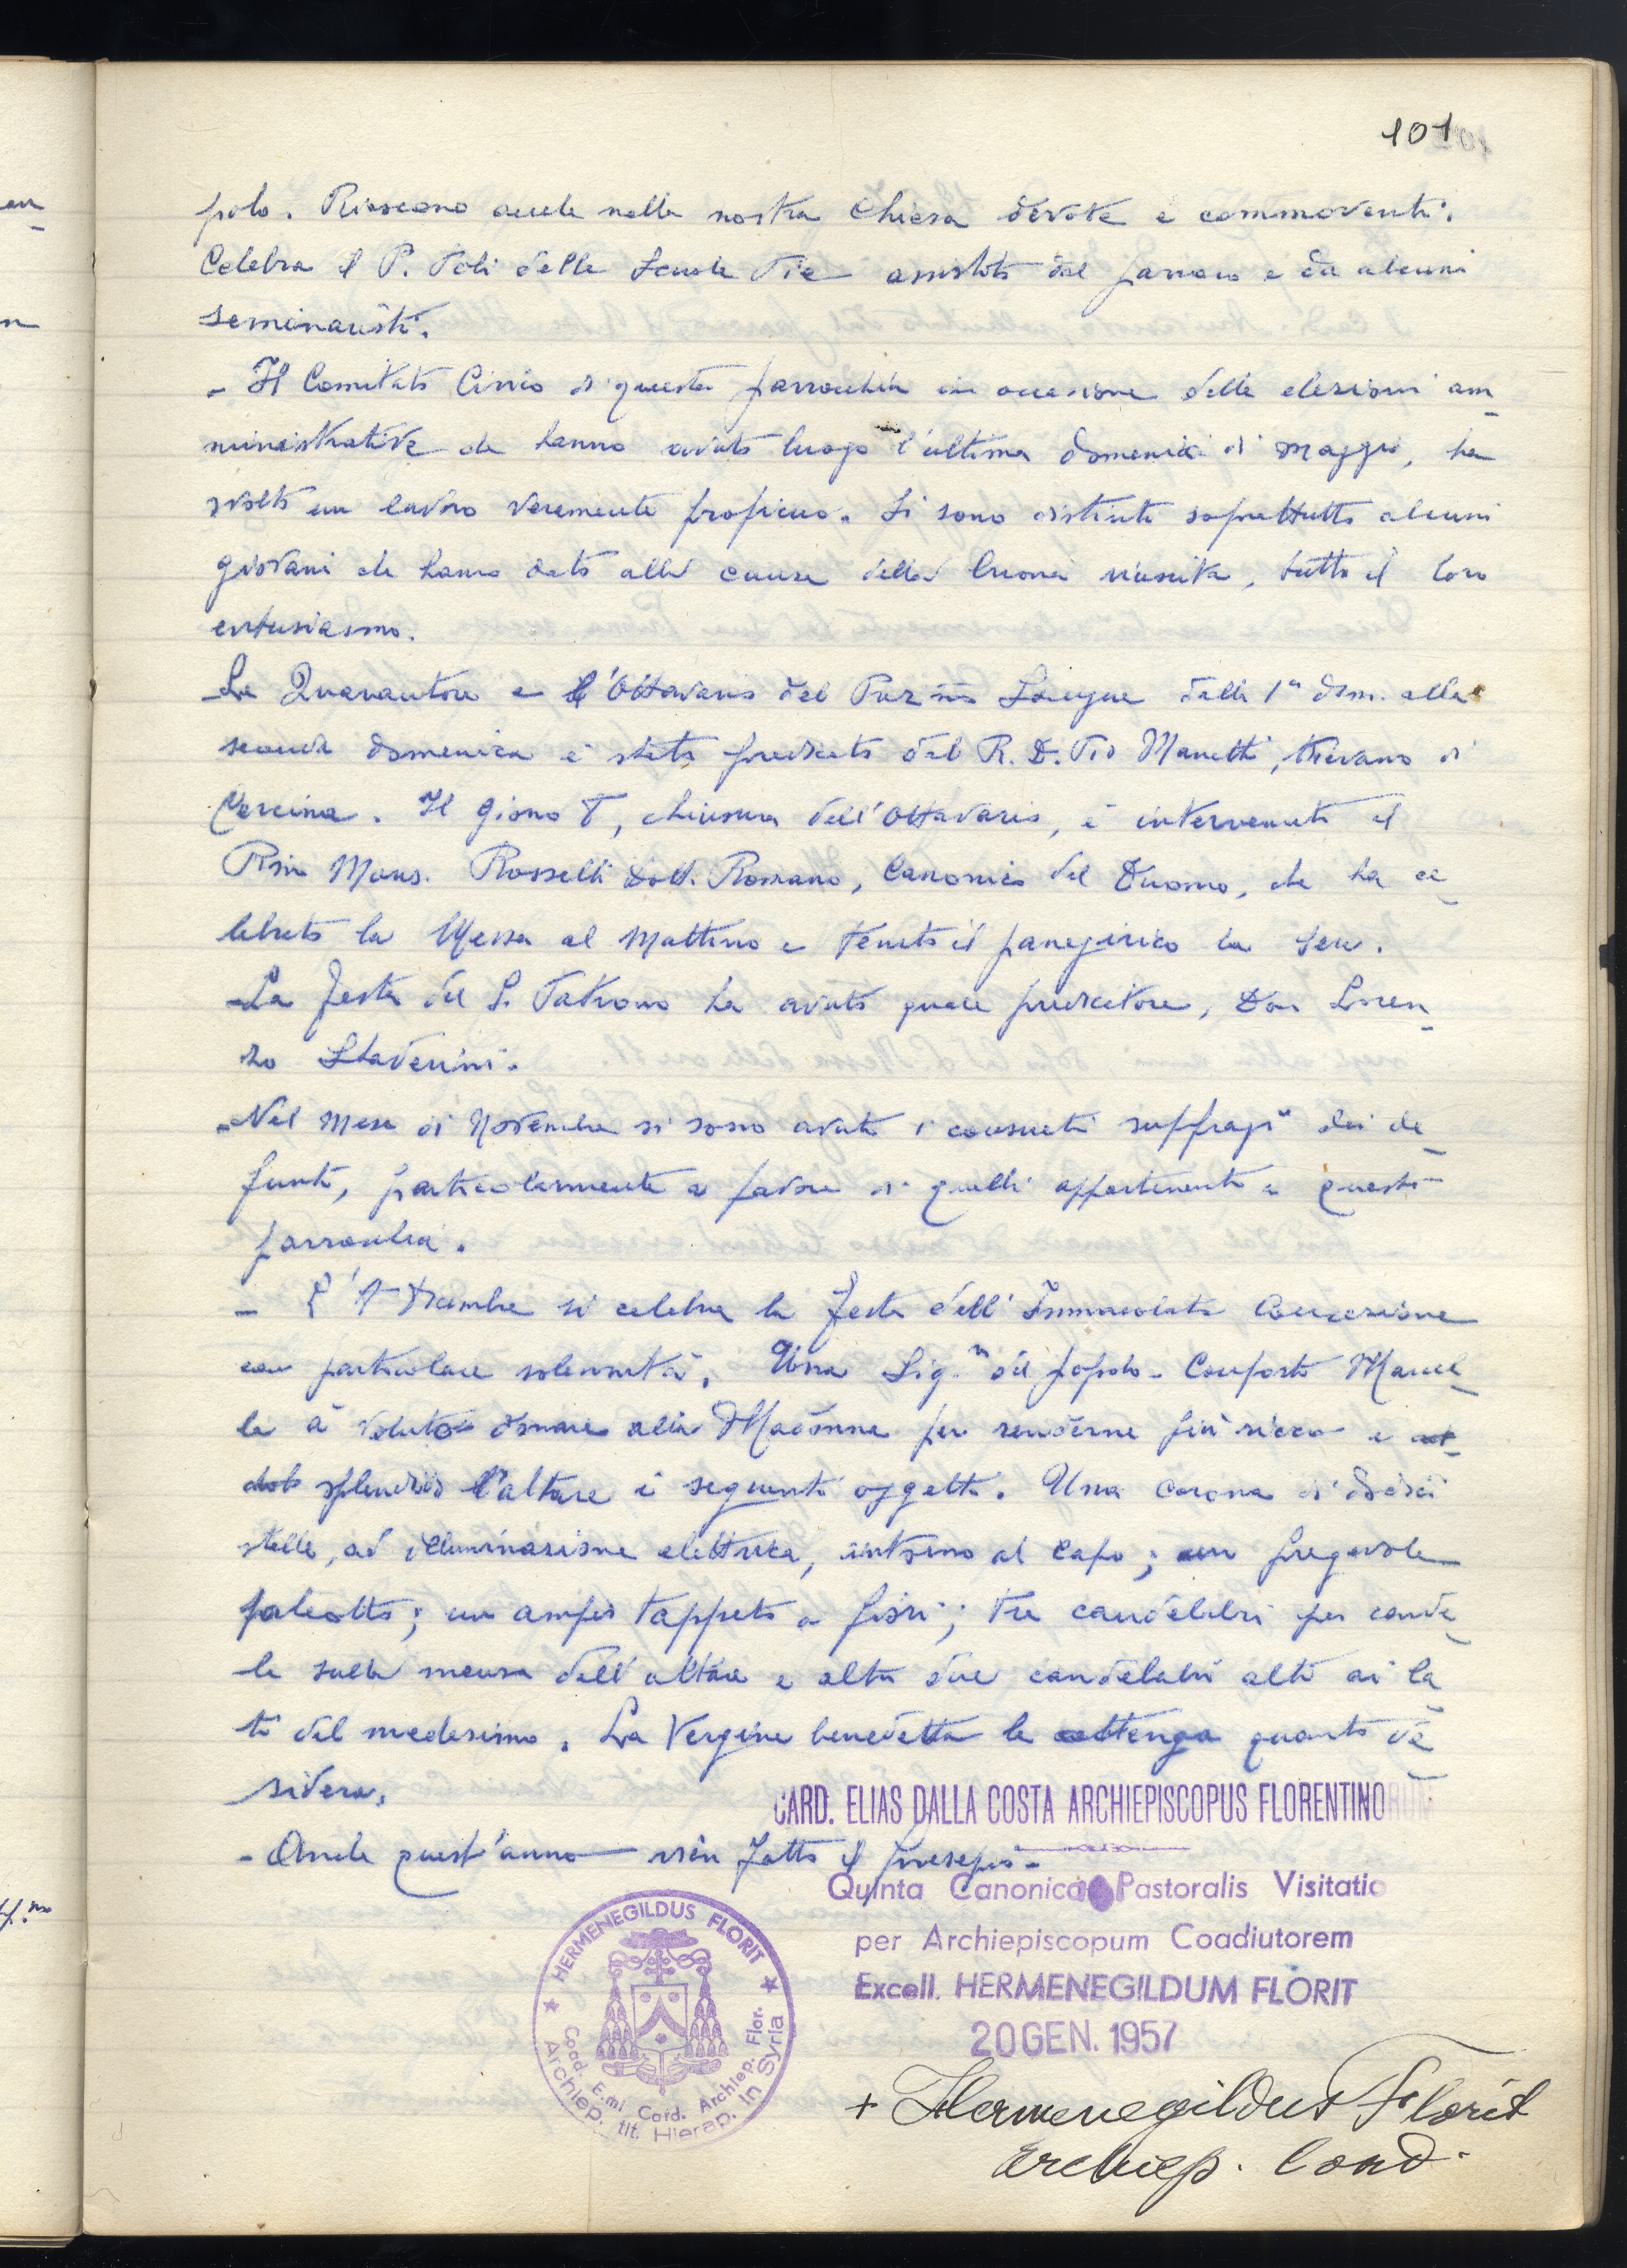 101
polo. Riescono anche nella nostra Chiesa devote e commoventi.
Celebra il P. Poli delle Scuole Pie assistito dal parroco e da alcuni
seminaristi.
- Il Comitato Civico di questa parrocchia in occasione delle elezioni am_
ministrative che hanno avuto luogo l'ultima domenica di maggio, ha
svolto un lavoro veramente proficuo. Si sono distinti soprattutto alcuni
giovani che hanno dato alla causa della buona riuscita, tutto il loro
entusiasmo.
Le Quarantore e l'Ottavario del Pur.mo Sangue dalla 1a dom. alla
seconda domenica è stato predicato dal R. D. Pio Manetti, Pievano di
Cercina. Il giorno 8, chiusura dell'Ottavario, è intervenuto il
Rmo Mons. Rosselli Dott. Romano, Canonico del Duomo, che ha ce_
lebrato la Messa al mattino e tenuto il panegirico la sera.
-La festa del S. Patrono ha avuto quale predicatore, Don Loren_
zo
-Nel mese di Novembre si sono avuti i consueti suffragi dei de_
funti, particolarmente a favore di quelli appartenenti a questa
parrocchia.
- L'8 Dicembre si celebra la festa dell'Immacolata Concezione
con particolare solennità. Una Sig.ra del popolo - Conforto Marcel_
la à voluto donare alla Madonna per renderne più ricco e
splendido l'altare i seguenti oggetti. Una corona di dodici
stelle, ad illuminazione elettrica, intorno al capo; un pregevole
paliotto; un ampio tappeto a fiori; tre candelabri per cande_
le sulla mensa dell'altare e altri due candelabri alti ai la_
ti del medesimo. La Vergine benedetta le ottenga quanto de_
sidera.
- Anche quest'anno vien fatto il presepio -
CARD. ELIAS DALLA COSTA ARCHIEPISCOPUS FLORENTINORUM
Quinta Canonica Pastoralis Visitatio
per Archiepiscopum Coadiutorem
Excell. HERMENEGILDUM FLORIT
20 GEN. 1957
+ Hermenegildus Florit
Archiep. Coad.
★ HERMENEGILDUS FLORIT ★
Archiep. tit. Hierap. in Syria
Coad. E.mi Card. Archiep. Flor.